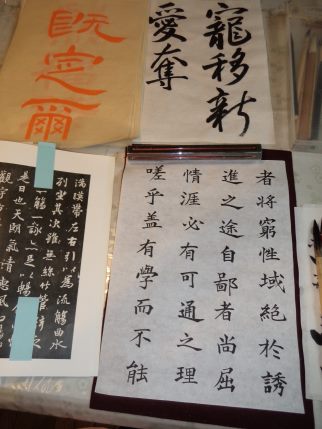 既定爾
寵移新
愛奪
者將窮性域絕於誘
進之途自鄙者尚屈
情涯必有可通之理
嗟乎盖有學而不能
帶左右引以為流觴曲水
列坐其次雖無絲竹管弦之
觴一詠亦足以暢
是日也天朗氣清惠風和暢
觀宇